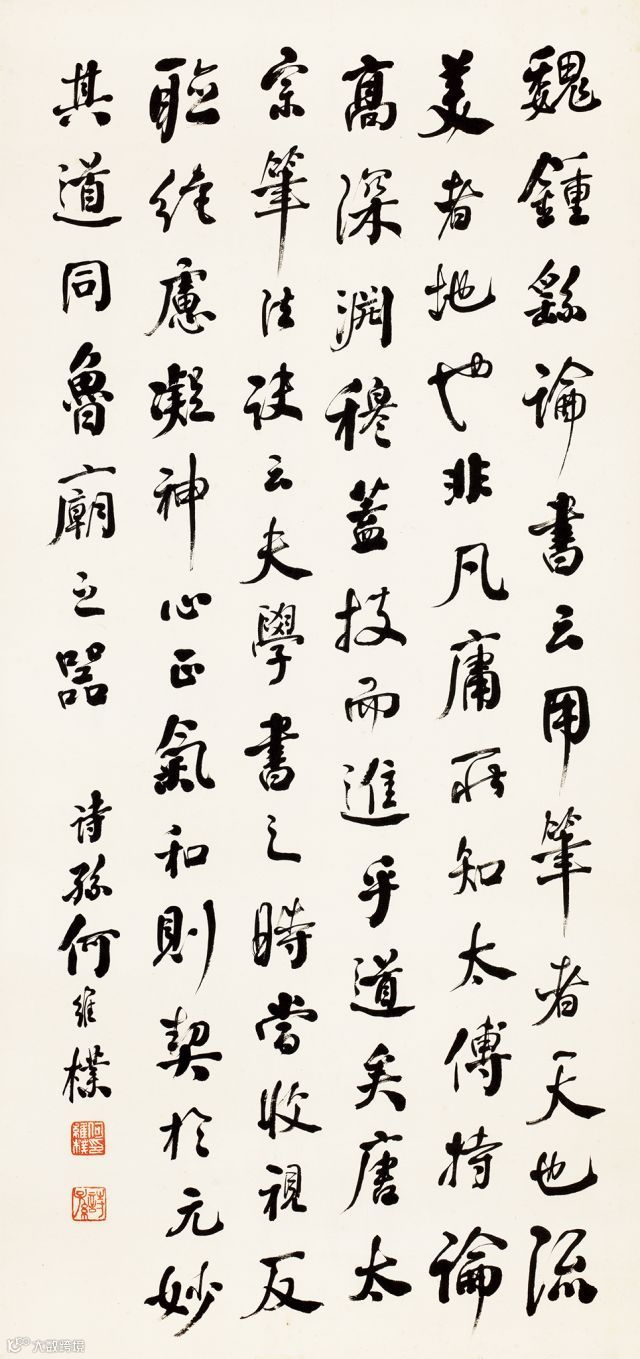 魏鍾繇論書云用筆者天也流
美者地也非凡庸所知太傅持論
高深淵穆蓋技而進乎道矣唐太
宗筆法訣云夫學書之時當收視反
聽絕慮凝神心正氣和則契於元妙
其道同魯廟之器
詩孫何維樸
何維樸印
詩孫
大故跨境